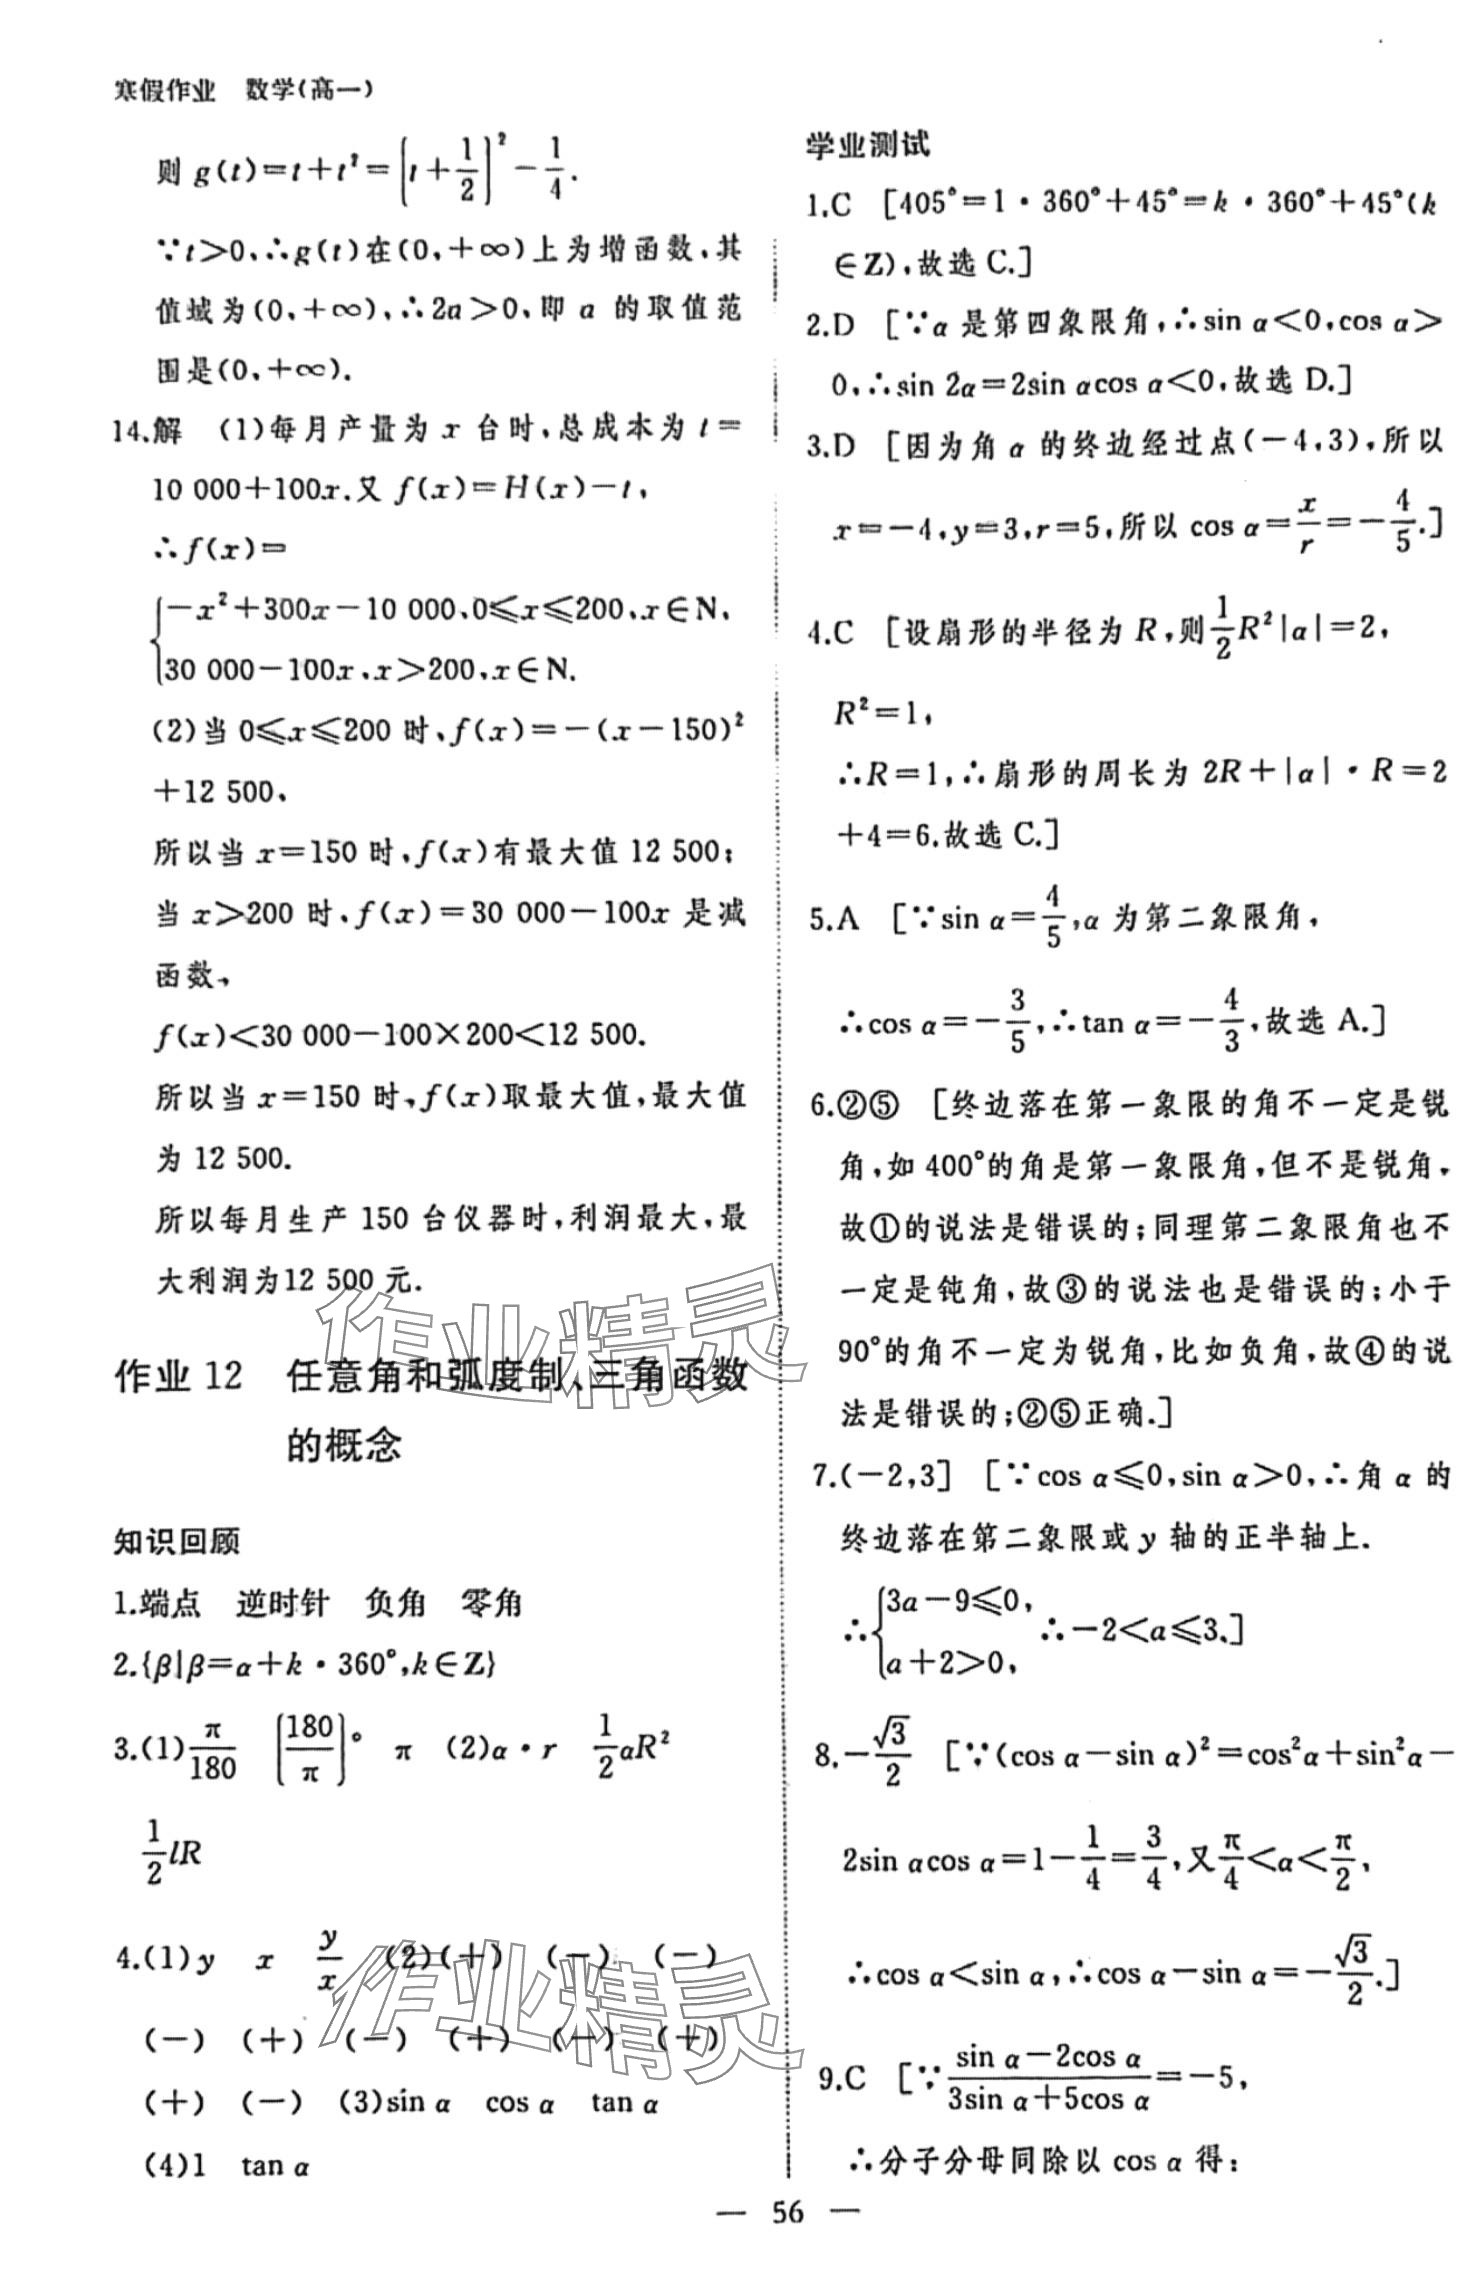 寒假作业 数学(高一)
则 g(t)=t+t²=(t+1/2)²-1/4.
∵t>0,∴g(t)在(0,+∞)上为增函数,其
值域为(0,+∞),∴2a>0,即 a 的取值范
围是(0,+∞).
14.解 (1)每月产量为 x 台时,总成本为 t=
10 000+100x.又 f(x)=H(x)-t,
∴f(x)=
{-x²+300x-10 000,0≤x≤200,x∈N,
30 000-100x,x>200,x∈N.
(2)当 0≤x≤200 时,f(x)=-(x-150)²
+12 500,
所以当 x=150 时,f(x)有最大值 12 500;
当 x>200 时,f(x)=30 000-100x 是减
函数,
f(x)<30 000-100×200<12 500.
所以当 x=150 时,f(x)取最大值,最大值
为 12 500.
所以每月生产 150 台仪器时,利润最大,最
大利润为12 500 元.
作业 12 任意角和弧度制、三角函数
的概念
知识回顾
1.端点 逆时针 负角 零角
2.{β|β=α+k·360°,k∈Z}
3.(1)π/180 (180/π)° π (2)α·r 1/2αR²
1/2lR
4.(1)y x y/x (2)(+) (-) (-)
(-) (+) (-) (+) (-) (+)
(+) (-) (3)sin α cos α tan α
(4)1 tan α
学业测试
1.C [405°=1·360°+45°=k·360°+45°(k
∈Z),故选 C.]
2.D [∵α 是第四象限角,∴sin α<0,cos α>
0,∴sin 2α=2sin αcos α<0,故选 D.]
3.D [因为角 α 的终边经过点(-4,3),所以
x=-4,y=3,r=5,所以 cos α=x/r=-4/5.]
4.C [设扇形的半径为 R,则1/2R²|α|=2,
R²=1,
∴R=1,∴扇形的周长为 2R+|α|·R=2
+4=6.故选 C.]
5.A [∵sin α=4/5,α 为第二象限角,
∴cos α=-3/5,∴tan α=-4/3,故选 A.]
6.②⑤ [终边落在第一象限的角不一定是锐
角,如 400°的角是第一象限角,但不是锐角,
故①的说法是错误的;同理第二象限角也不
一定是钝角,故③的说法也是错误的;小于
90°的角不一定为锐角,比如负角,故④的说
法是错误的;②⑤正确.]
7.(-2,3] [∵cos α≤0,sin α>0,∴角 α 的
终边落在第二象限或 y 轴的正半轴上.
∴{3a-9≤0,
a+2>0, ∴-2<a≤3.]
8.-√3/2 [∵(cos α-sin α)²=cos²α+sin²α-
2sin αcos α=1-1/4=3/4,又π/4<α<π/2,
∴cos α<sin α,∴cos α-sin α=-√3/2.]
9.C [∵(sin α-2cos α)/(3sin α+5cos α)=-5,
∴分子分母同除以 cos α 得:
— 56 —
作业精灵
作业精灵